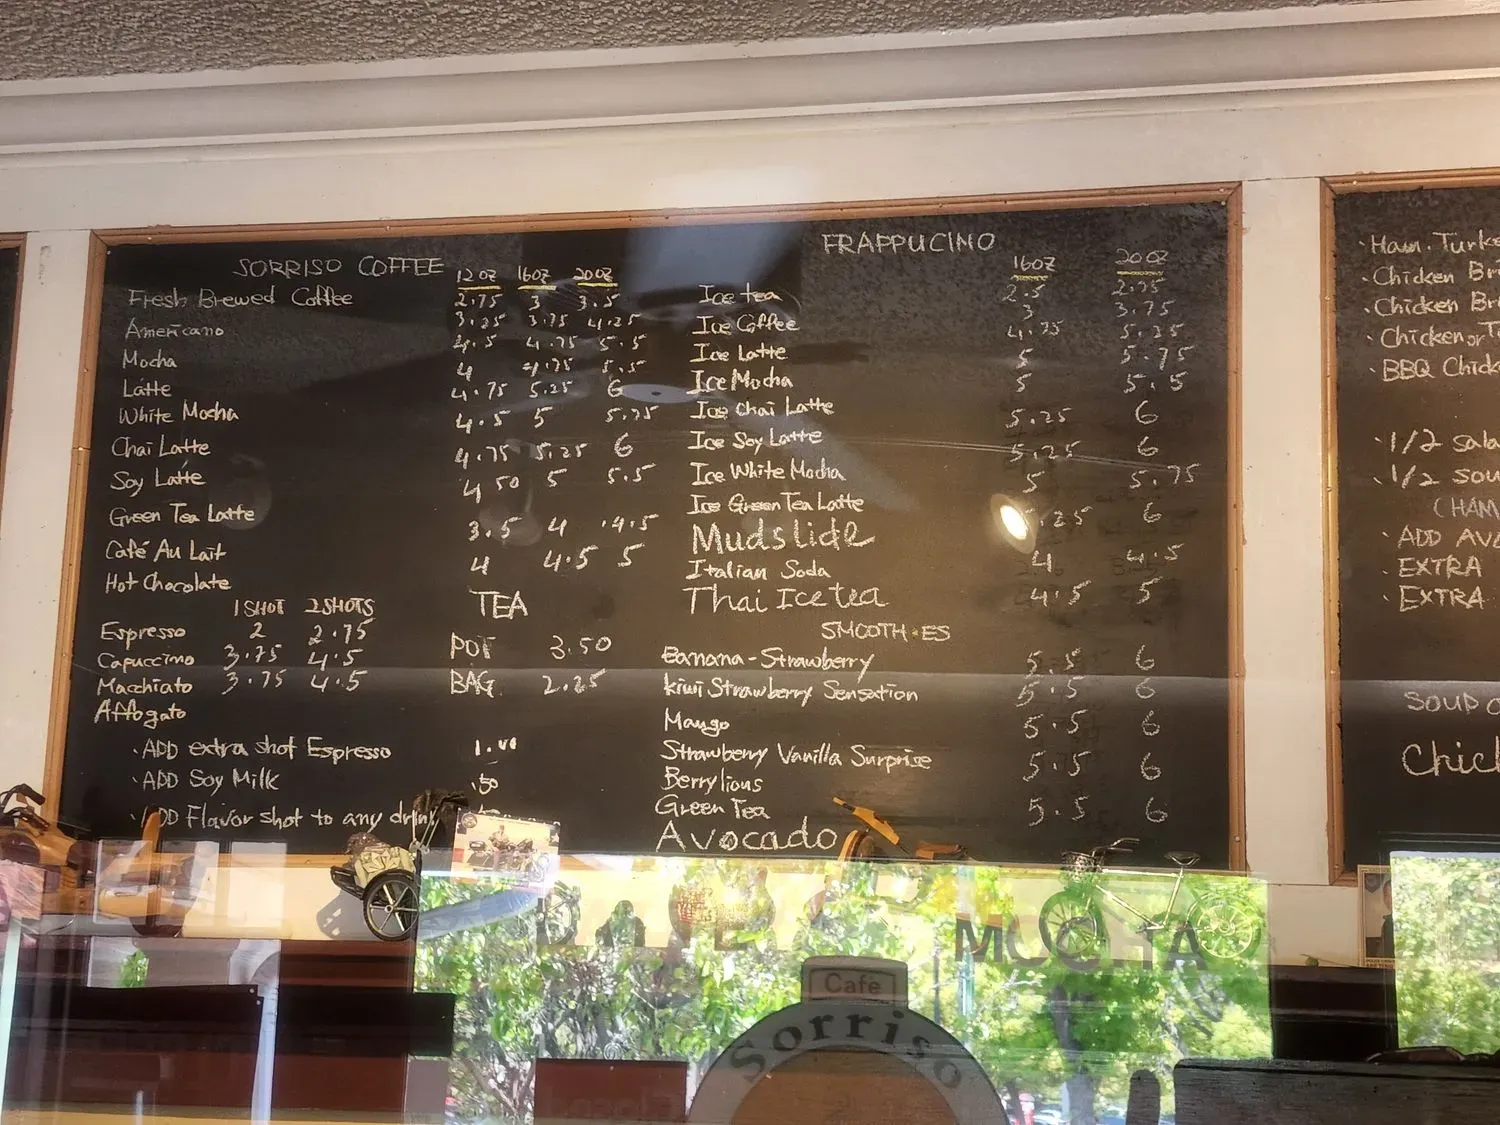 SORRISO COFFEE 12oz 16oz 20oz
Fresh Brewed Coffee 2.75 3 3.5
Americano 3.25 3.75 4.25
Mocha 4.5 4.75 5.5
Latte 4 4.75 5.5
White Mocha 4.75 5.25 6
Chai Latte 4.5 5 5.75
Soy Latte 4.75 5.25 6
Green Tea Latte 4.50 5 5.5
Café Au Lait 3.5 4 4.5
Hot Chocolate 4 4.5 5
1 SHOT 2 SHOTS
Espresso 2 2.75
Capuccino 3.75 4.5
Macchiato 3.75 4.5
Affogato
TEA
POT 3.50
BAG 2.25
· ADD extra shot Espresso 1.00
· ADD Soy Milk .50
· ADD Flavor shot to any drink
FRAPPUCINO
16oz 20oz
Ice tea 2.5 2.75
Ice Coffee 3 3.75
Ice Latte 4.75 5.25
Ice Mocha 5 5.75
Ice Chai Latte 5 5.5
Ice Soy Latte 5.25 6
Ice White Mocha 5.25 6
Ice Green Tea Latte 5 5.75
Mudslide .25 6
Italian Soda 4 4.5
Thai Ice tea 4.5 5
SMOOTHIES
Banana-Strawberry 5.5 6
kiwi Strawberry Sensation 5.5 6
Mango 5.5 6
Strawberry Vanilla Surprise 5.5 6
Berrylious
Green Tea 5.5 6
Avocado
· Ham. Turke
· Chicken Br
· Chicken Br
· Chicken or T
· BBQ Chick
· 1/2 Sala
· 1/2 SOU
(HAM
· ADD AVO
· EXTRA
· EXTRA
SOUP O
Chick
MOCHA
Cafe
Sorriso